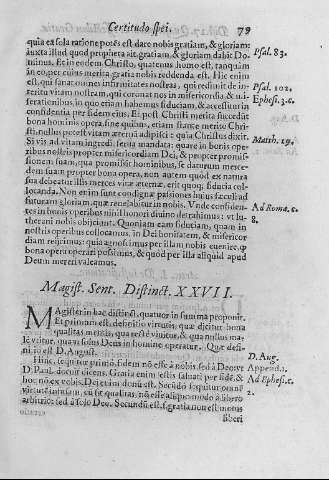 Certitudo spei. 79
quia ea sola ratione potēs est dare nobis gratiam, & gloriam:
iuxta illud quod propheta ait gratiam, & gloriam dabit Do- Psal. 83.
minus. Et in eodem Christo, quatenus homo est, tanquam
in eo per cuius merita gratia nobis reddenda est. Hic enim
est, qui sanat omnes infirmitates nostras, qui redimit de in- Psal. 102.
teritu vitam nostram, qui coronat nos in misericordia & mi-
serationibus in quo etiam habemus fiduciam, & accessum in Ephes. 3. c.
confidentia per fidem eius. Et post Christi merita succedūt
bona hominis opera, sine quibus, etiam stante merito Chri-
sti, nullus potest vitam æternā adipisci: quia Christus dixit.
Si vis ad vitam ingredi serua mandata: quare in bonis ope- Matth. 19.
ribus nostris propter misericordiam Dei, & propter promis-
sionem suam, qua promisit hominibus, se daturum merce-
dem suam propter bona opera, non autem quòd ex natura
sua debeatur illis merces vitæ æternæ, est quoq; fiducia col-
locanda. Non enim sunt condignæ passiones huius sæculi ad
futuram gloriam, quæ reuelabitur in nobis. Vnde confiden- Ad Roma. c.
tes in bonis operibus nihil honori diuino detrahimus: vt lu- 8.
therani nobis obijciunt. Quoniam eam fiduciam, quam in
nostris operibus collocamus, in Dei bonitatem, & misericor
diam reijcimus: quia agnoscimus per illam nobis euenire, q̄
bona opera operari possimus, & quòd per illa aliquid apud
Deum mereri valeamus.
Magist. Sent. Distinct. XXVII.
Magister in hac distinct. quatuor in summa proponit.
Et primum est, definitio virtutis, quæ dicitur bona
qualitas mentis, qua rectè viuitur, & qua nullus ma-
lè vtitur, quam solus Deus in homine operatur. Quæ defi-
nitio est D. August. D. Aug.
Hinc sequitur primò, fidem nō esse à nobis sed à Deo: vt Append. 1.
D. Paul. docuit dicens. Gratia enim estis saluati per fidē, & Ad Ephes. c.
hoc nō ex vobis, Dei enim donū est. Secūdò sequitur omnē 2.
virtutē iustam, cū sit qualitas, nō esse aliquo modo à libero
arbitrio: sed à solo Deo. Secundū est, q̄ gratia non est motus
liberi